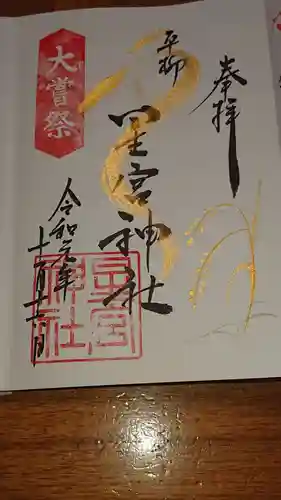 奉拝
平柳
星宮神社
大嘗祭
令和元年
十一月
星宮
神社